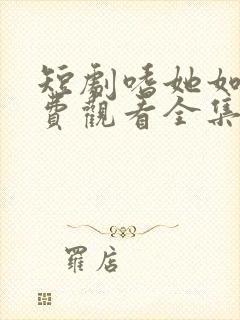 短劇嗜她如
費觀看全集
羅店